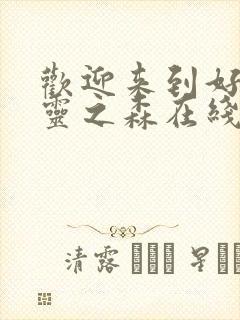 歡迎来到好
靈之森在綫
清露 星